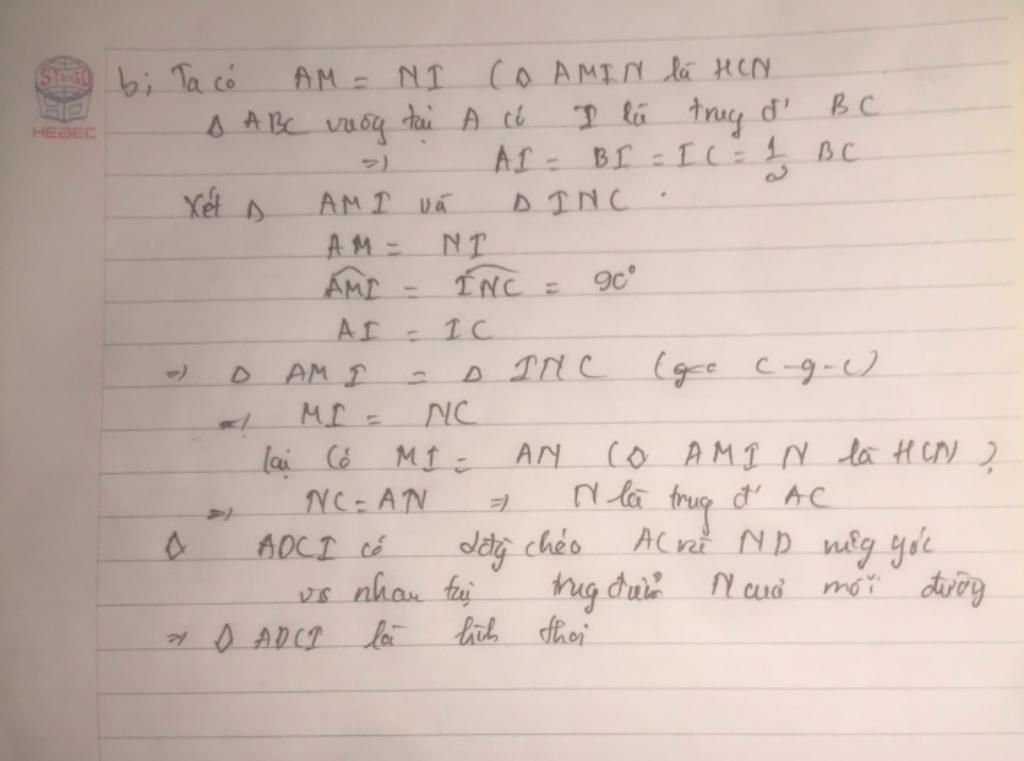 STI-GO
HEBEC
b; Ta có AM = NI (◇ AMIN là HCN
Δ ABC vuông tại A có I là trung đ' BC
=> AI = BI = IC = 1/2 BC
Xét Δ AMI và Δ INC .
AM = NI
AMI = INC = 90°
AI = IC
=> Δ AMI = Δ INC ( c-g-c)
=> MI = NC
lại có MI = AN (◇ AMIN là HCN)
=> NC = AN => N là trung đ' AC
◇ ADCI có chéo AC và ND góc
vs nhau tại trung điểm N của mỗi đường
=> ◇ ADCI là hình thoi